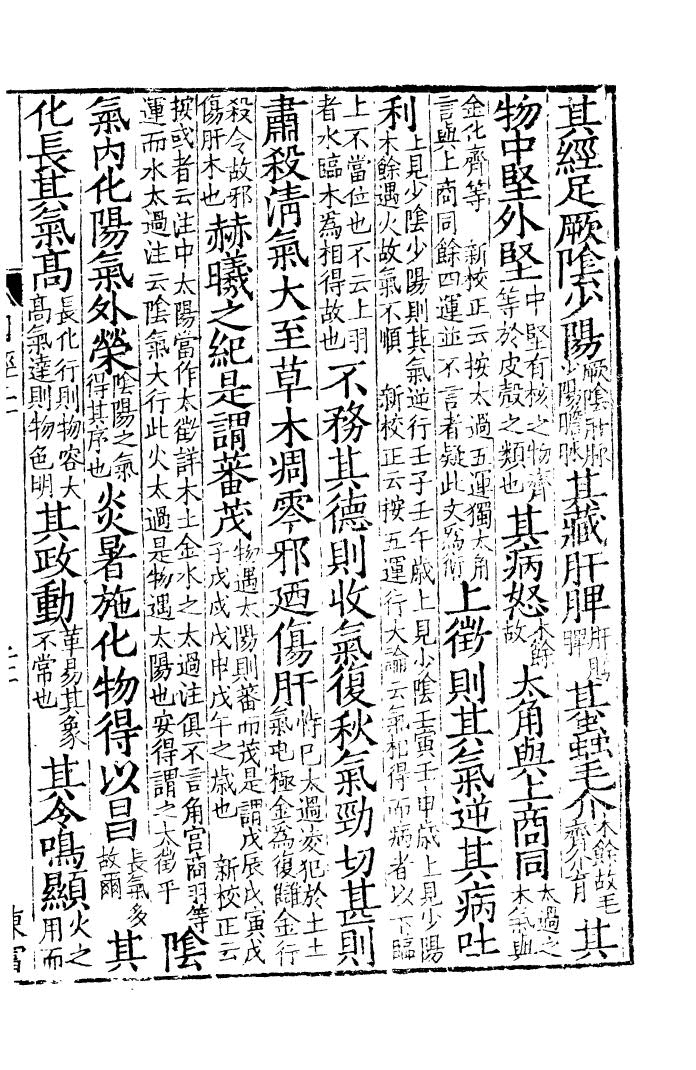 其經足厥陰少陽厥陰肝脉少陽膽脉其藏肝脾肝勝脾其蟲毛介木餘故毛齊介育其
物中堅外堅中堅有核之物齊等於皮殼之類也其病怒木餘故太角與上商同太過之木氣與
金化齊等　新校正云按太過五運獨太角言與上商同餘四運並不言者疑此文爲衍上徵則其氣逆其病吐
利上見少陰少陽則其氣逆行壬子壬午歲上見少陰壬寅壬申歲上見少陽木餘遇火故氣不順　新校正云按五運行大論云氣相得而病者以下臨
上不當位也不云上羽者水臨木為相得故也不務其德則收氣復秋氣勁切甚則
肅殺清氣大至草木凋零邪廼傷肝恃己太過凌犯於土土氣屯極金為復讎金行
殺令故邪傷肝木也赫曦之紀是謂蕃茂物遇太陽則蕃而茂是謂戊辰戊寅戊子戊戌戊申戊午之歲也　新校正云
按或者云注中太陽當作太徵詳木土金水之太過注俱不言角宮商羽等運而水太過注云陰氣大行此火太過是物遇太陽也安得謂之太徵乎陰
氣內化陽氣外榮陰陽之氣得其序也炎暑施化物得以昌長氣多故爾其
化長其氣高長化行則物容大高氣達則物色明其政動革易其象不常也其令鳴顯火之用而